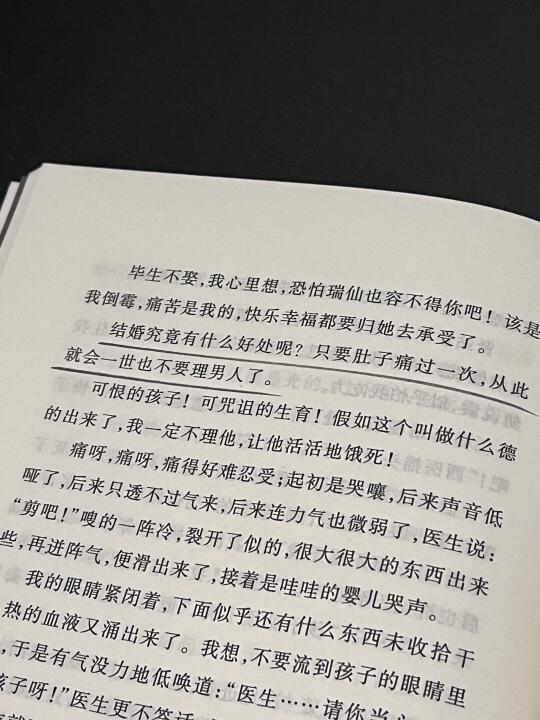 毕生不娶，我心里想，恐怕瑞仙也容不得你吧！该是
我倒霉，痛苦是我的，快乐幸福都要归她去承受了。
结婚究竟有什么好处呢？只要肚子痛过一次，从此
就会一世也不要理男人了。
可恨的孩子！可咒诅的生育！假如这个叫做什么德
的出来了，我一定不理他，让他活活地饿死！
痛呀，痛呀，痛得好难忍受；起初是哭嚷，后来声音低
哑了，后来只透不过气来，后来连力气也微弱了，医生说：
“剪吧！”嗖的一阵冷，裂开了似的，很大很大的东西出来
些，再迸阵气，便滑出来了，接着是哇哇的婴儿哭声。
我的眼睛紧闭着，下面似乎还有什么东西未收拾干
热的血液又涌出来了。我想，不要流到孩子的眼睛里
，于是有气没力地低唤道：“医生……请你当心
孩子呀！”医生更不答话